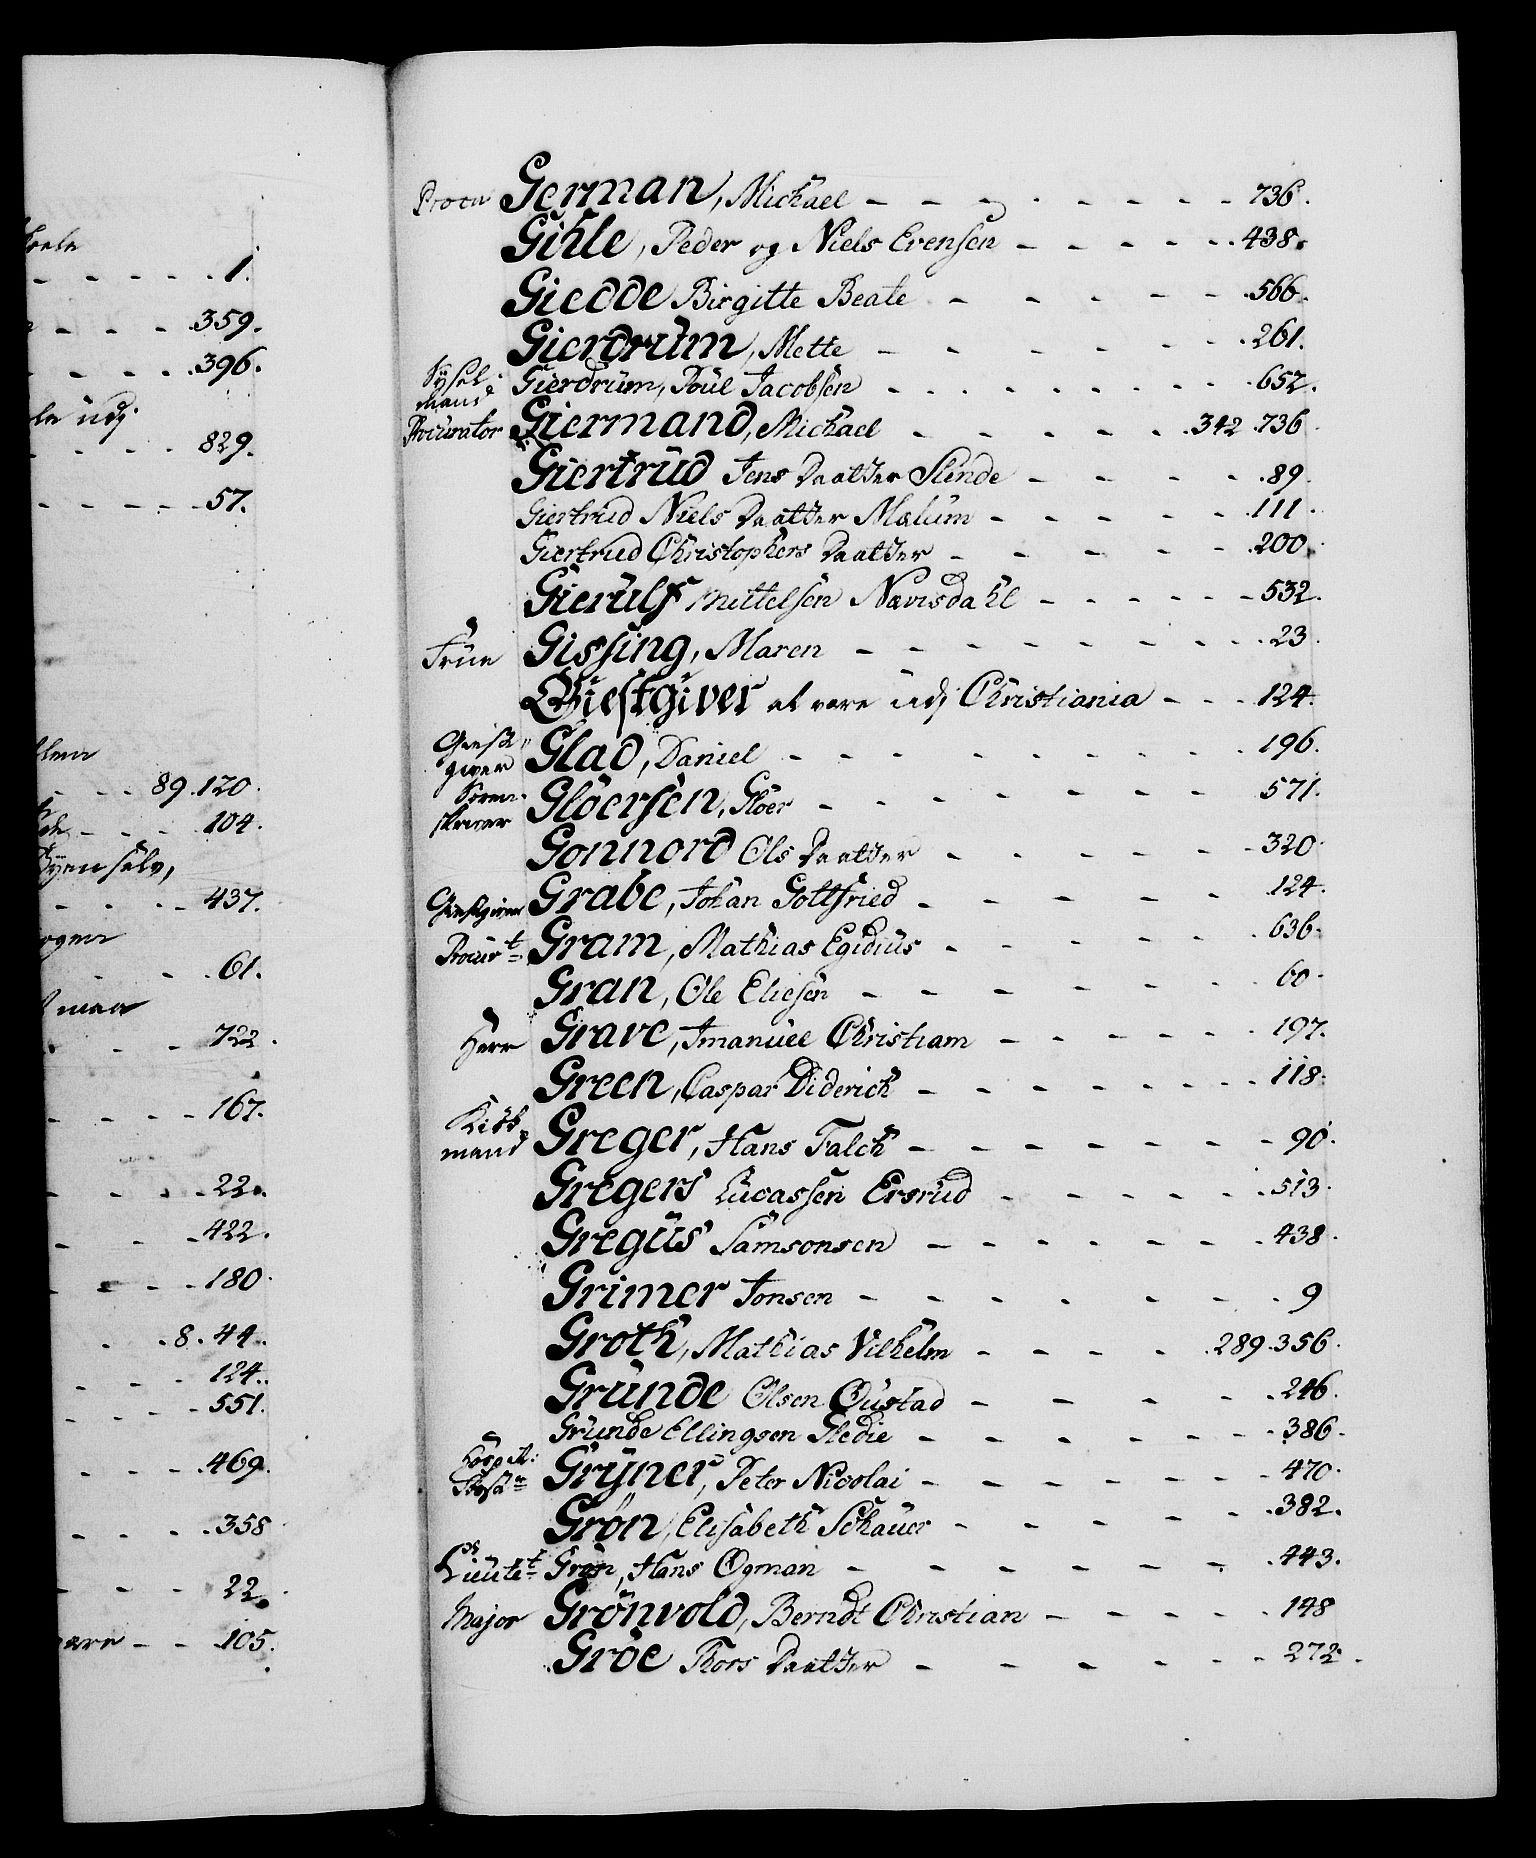 1.
359.
396.
829.
57.
89. 120.
104.
437.
61.
722.
167.
22.
422.
180.
8. 44.
124.
551.
469.
358
22.
105.
German, Michael - - - - - - - - 736.
Gihle, Peder og Niels Evensen - - - - - 438.
Giedde Birgitte Beate - - - - - 566.
Gierdrum, Mette - - - - - - 261.
Sysel-
mand Gierdrum, Poul Jacobsen - - - - - - - 652.
Procurator Giermand, Michael - - - - - 342. 736
Giertrud Jens Daatter Slende - - - - 89.
Giertrud Niels Daatter Mælum - - - - - 111.
Giertrud Christophers Daatter - - - - - 200.
Gierulf Mittelsen Nævisdahl - - - - - - 532.
Frue Gissing, Maren - - - - - - - - 23.
Giestgiver at være udj Christiania - - - 124.
Giest-
giver Glad, Daniel - - - - - - - - 196.
Soren-
skriver Glöersen, Glöer - - - - - - - 571.
Gonnord Ols Daatter - - - - - - 320.
Giestgiver Grabe, Johan Gottfried - - - - - 124.
Procurt Gram, Mathias Egidius - - - - - - 636.
Gran, Ole Eliesen - - - - - - - 60.
Herr Grave, Imanuel Christiam - - - - - - 197.
Green, Caspar Diderich - - - - - - - 118.
Kiöb-
mand Greger, Hans Falch - - - - - - - 90.
Gregers Lucassen Ersrud - - - - - - 513.
Gregus Samsonsen - - - - - - - 438.
Grimer Jonsen - - - - - - - - 9
Groth, Mathias Vilhelm - - - - 289. 356.
Grunde Olsen Qustad - - - - - - 246.
Grunde Ellingsen Gledie - - - - - - - 386.
Gryner, Peter Nicolai - - - - - - - 470.
Grøn, Elisabeth Schauer - - - - - - 382.
Lieutet Grøn, Hans Ogman - - - - - - - 443.
Major Grönvold, Berndt Christian - - - - - 148
Gröe Thors Daatter - - - - - - 272.